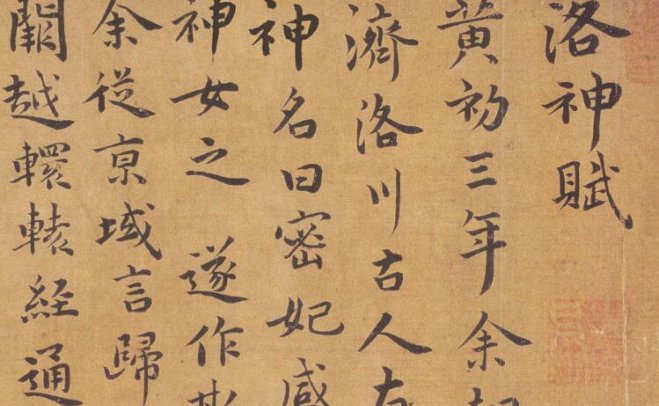 洛神賦
黄初三年余
濟洛川古人有
神名曰密妃感
神女之 遂作斯
余從亰域言歸
闕越轘轅経通